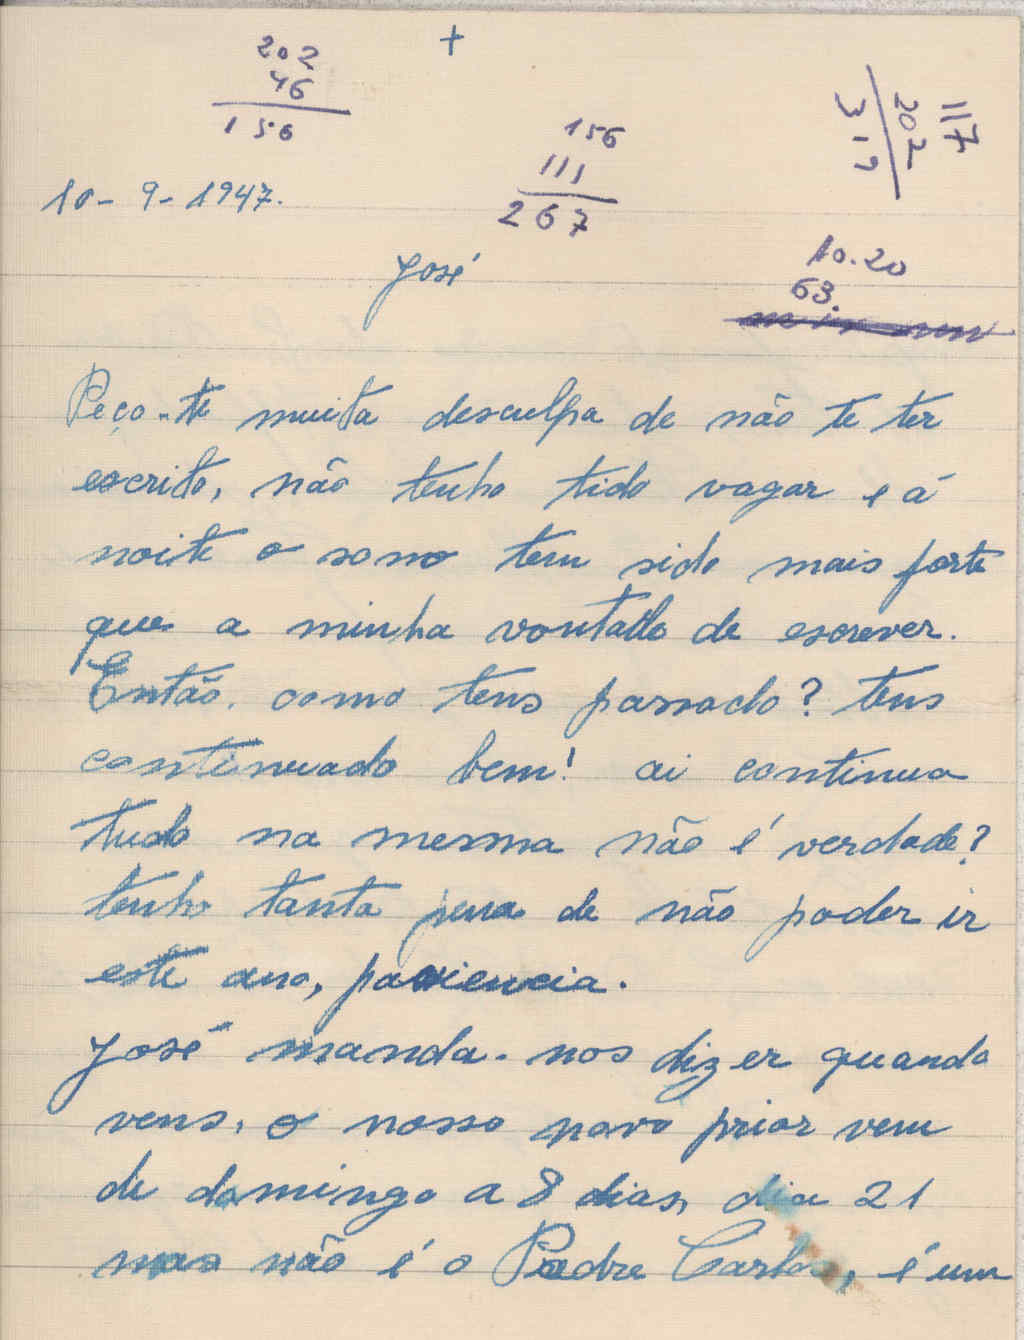 +
202
46
156
156
111
267
117
202
319
10-9-1947.
José
10.20
63.
Peço-te muita desculpa de não te ter
escrito, não tenho tido vagar e á
noite o sono tem sido mais forte
que a minha vontade de escrever.
Então. como tens passado? tens
continuado bem! ai continua
tudo na mesma não é verdade?
tenho tanta pena de não poder ir
este ano, paciencia.
José manda-nos dizer quando
vens, o nosso novo prior vem
de domingo a 8 dias, dia 21
mas não é o Padre Carlos, é um